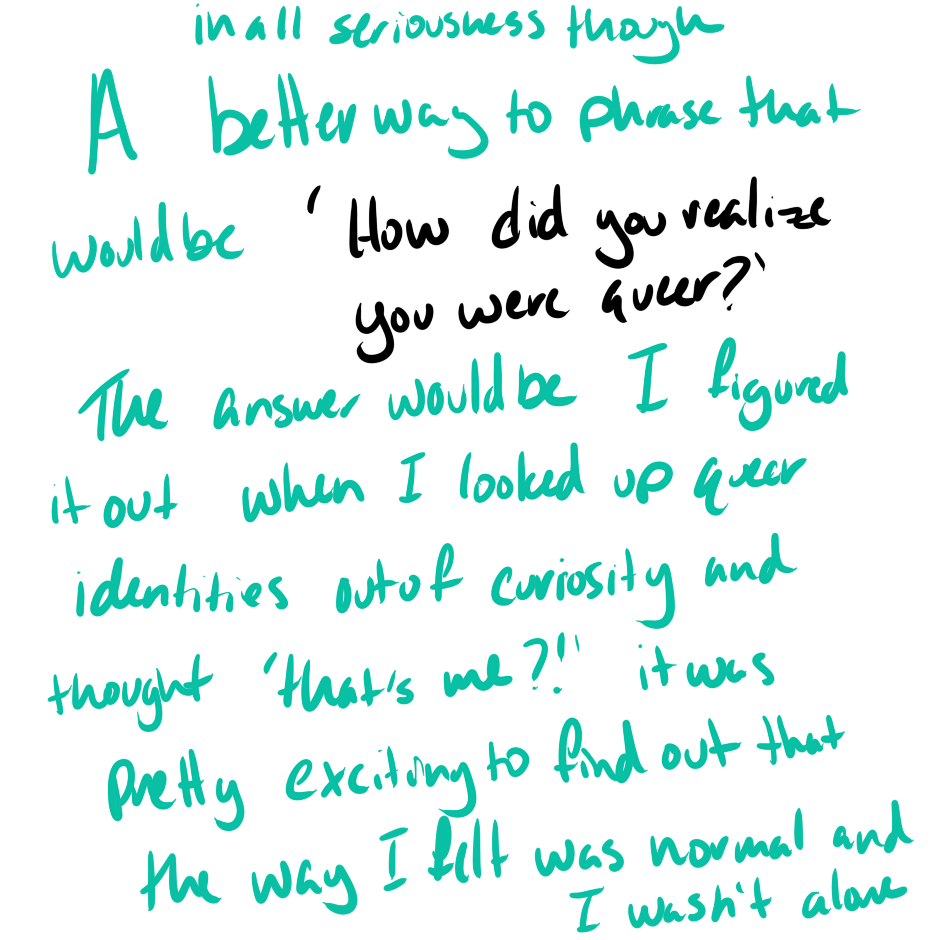 in all seriousness though
A better way to phrase that
would be 'How did you realize
you were queer?'
The answer would be I figured
it out when I looked up queer
identities out of curiosity and
thought 'that's me?!' it was
pretty exciting to find out that
the way I felt was normal and
I wasn't alone